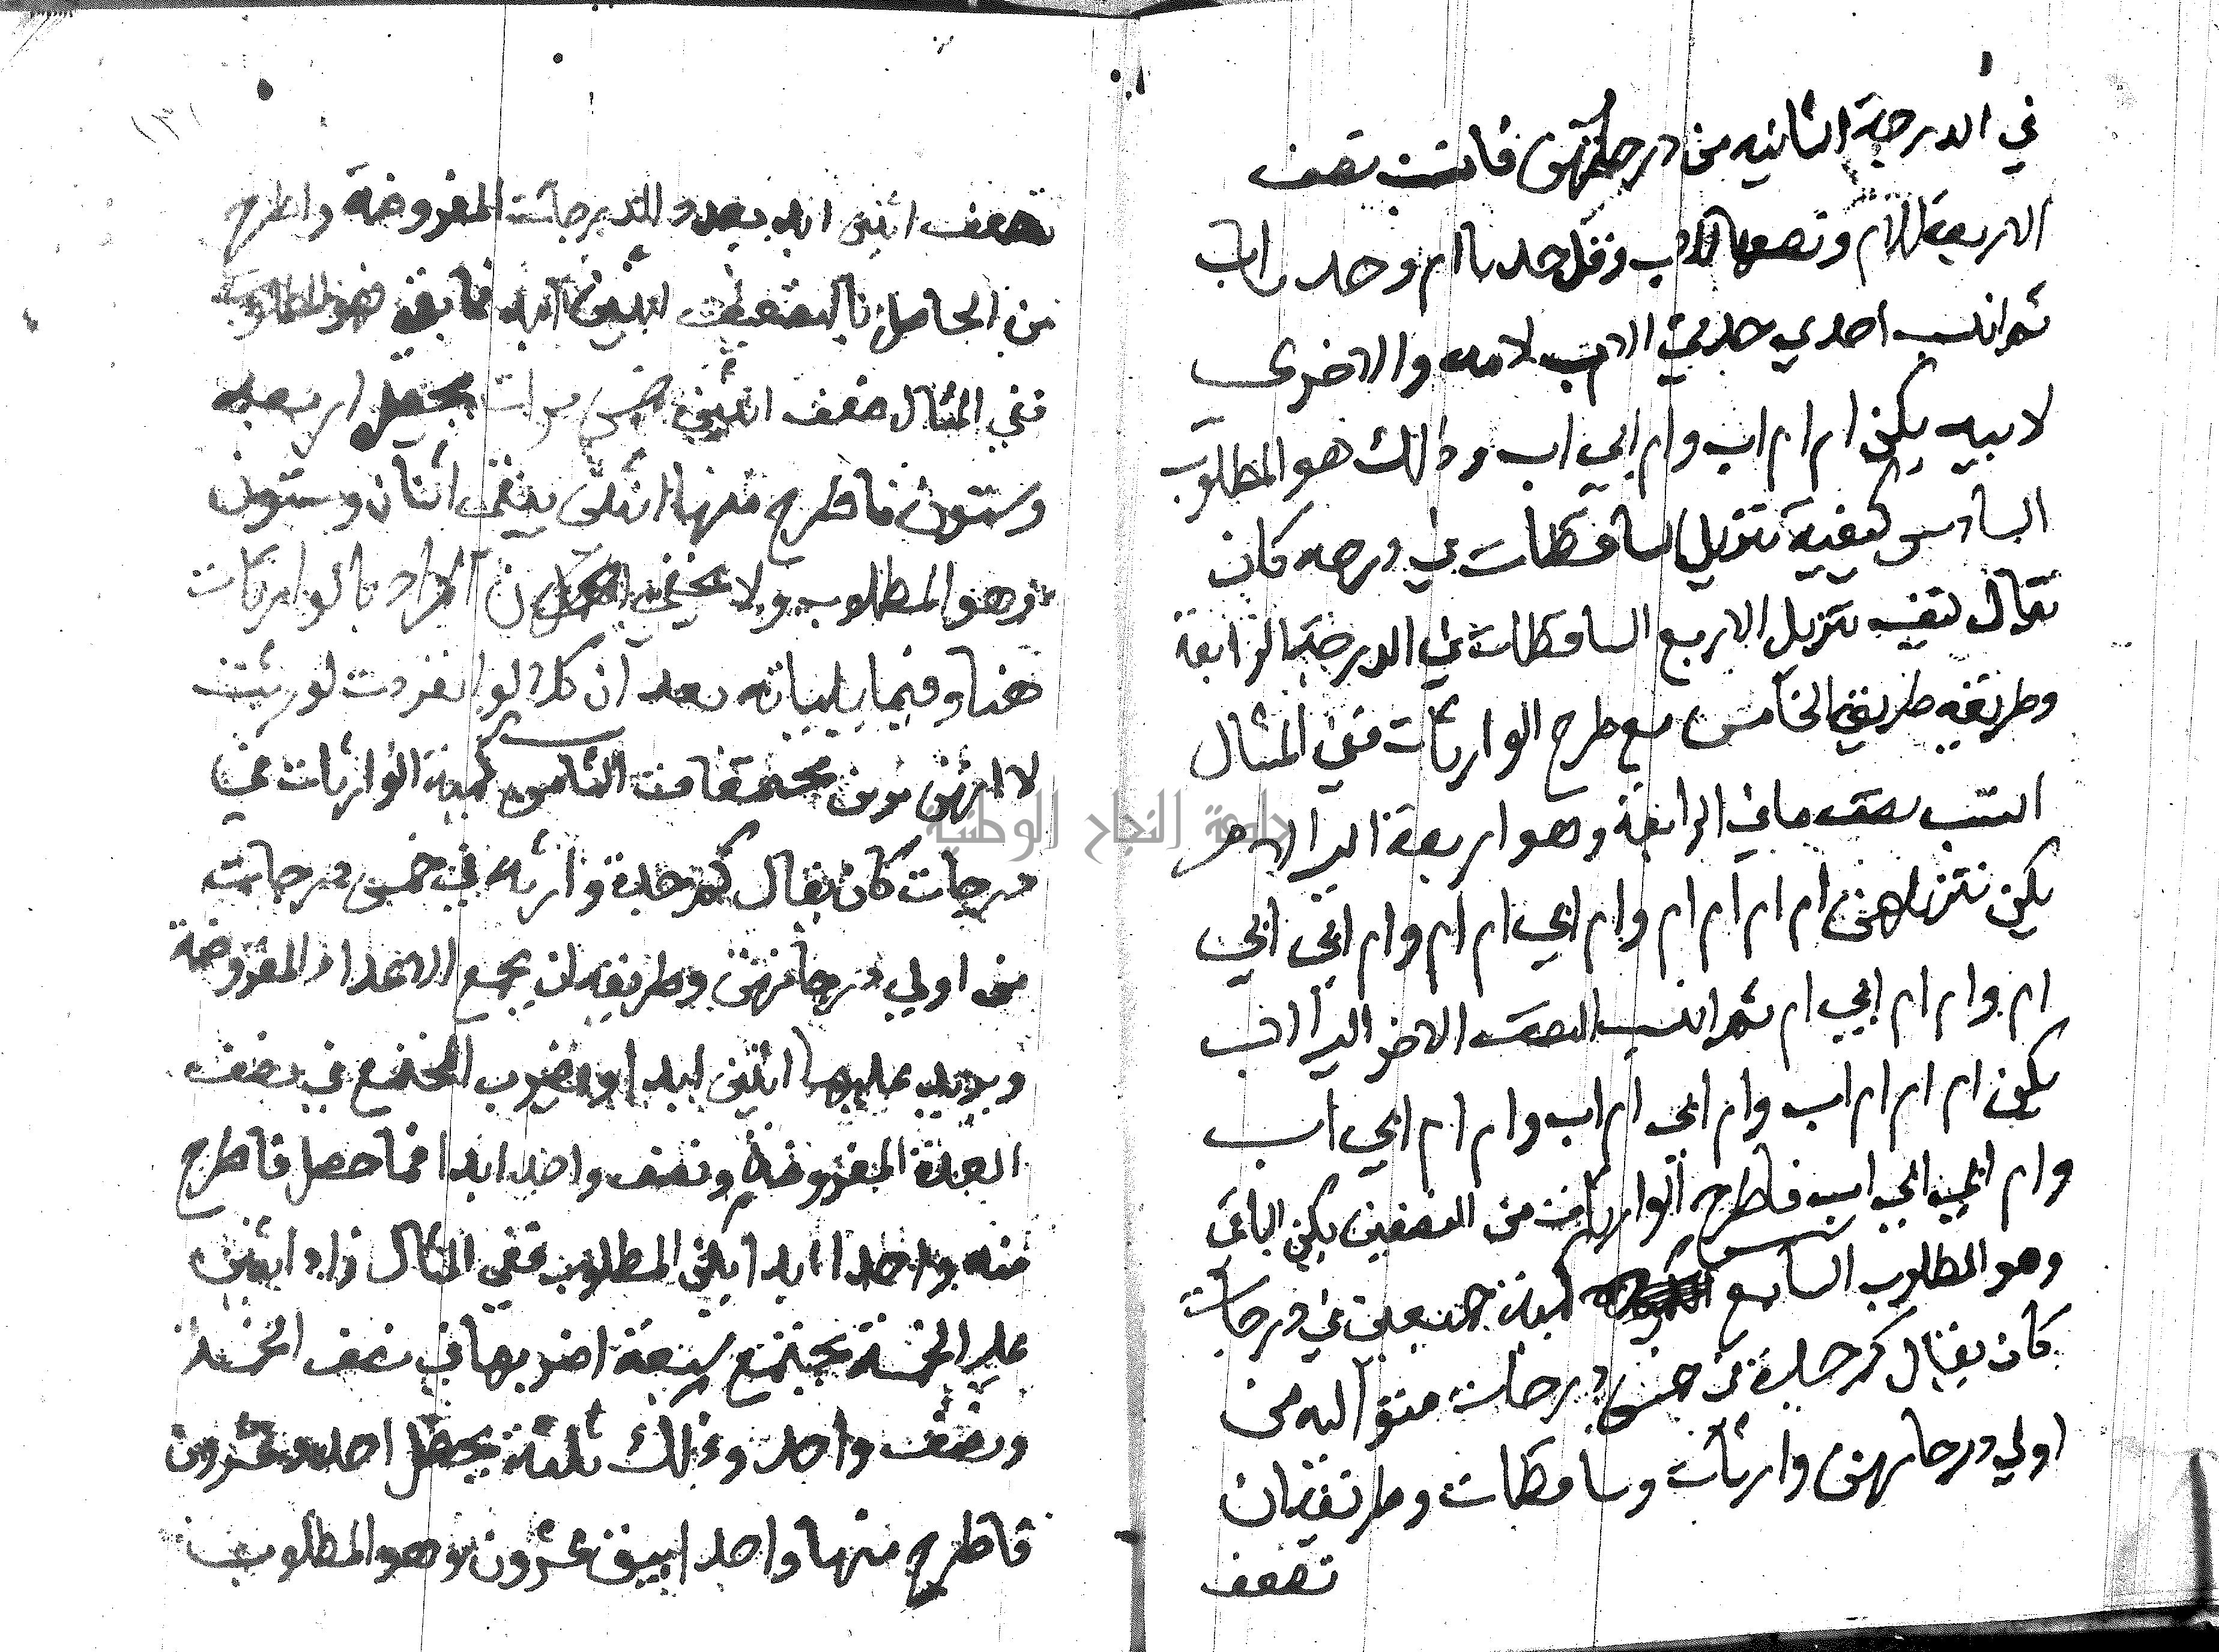 في الدرجة الثانيه من درجاتهن فانسب نصف
الاربعة للام ونصفها للاب وقل جدتا ام وجدتا اب
ثم انسب احدي جدتي الاب لامه والاخرى
لابيه يكن ام ام اب وام ابي اب وذلك هو المطلوب
السادس كيفية تنزيل الساقطات في درجه كان
يقال كيف تنزيل الاربع الساقطات في الدرجة الرابعة
وطريقه طريق الخامس مع طرح الوارثات ففي المثال
انسب نصف ما في الرابعة وهو اربعة الي الام
يكن تنزيلهن ام ام ام ام وام ابي ام ام وام ابي ابي
ام وام ام ابي ام ثم انسب النصف الاخر الي الاب
يكن ام ام ام اب وام ابي ام اب وام ام ابي اب
وام ابي ابي اب فاطرح الوارثات من النصفين يكن الباقي
وهو المطلوب السابع كمية جميعهن في درجات
كان يقال كم جدة في خمس درجات متواليه من
اولي درجاتهن وارثات وساقطات وطريقه ان
تضعف
تضعف اثنين ابدا بعدد الدرجات المفروضة واطرح
من الحاصل بالتضعيف اثنين ابدا فما بقي فهو المطلوب
ففي المثال ضعف اثنين خمس مرات يحصل اربعة
وستون فاطرح منها اثنين يبقى اثنان وستون
وهو المطلوب ولا يخفي ان المراد بالوارثات
هنا وفيما ياتي بعد ان كلا لو انفردت لورثت
لا انهن يرثن مجتمعات الثامن كمية الوارثات في
درجات كان يقال كم جدة وارثه في خمس درجات
من اولي درجاتهن وطريقه ان يجمع الاعداد المفروضة
ويزيد عليها اثنين ابدا وتضرب المجتمع في نصف
العدة المفروضة ونصف واحد ابدا فما حصل فاطرح
منه واحدا ابدا يكن المطلوب ففي المثال زد اثنين
علي الخمسة يجتمع سبعة اضربها في نصف الخمسة
ونصف واحد وذلك ثلثة يحصل احد وعشرون
فاطرح منها واحدا يبقى عشرون وهو المطلوب
جامعة النجاح الوطنية